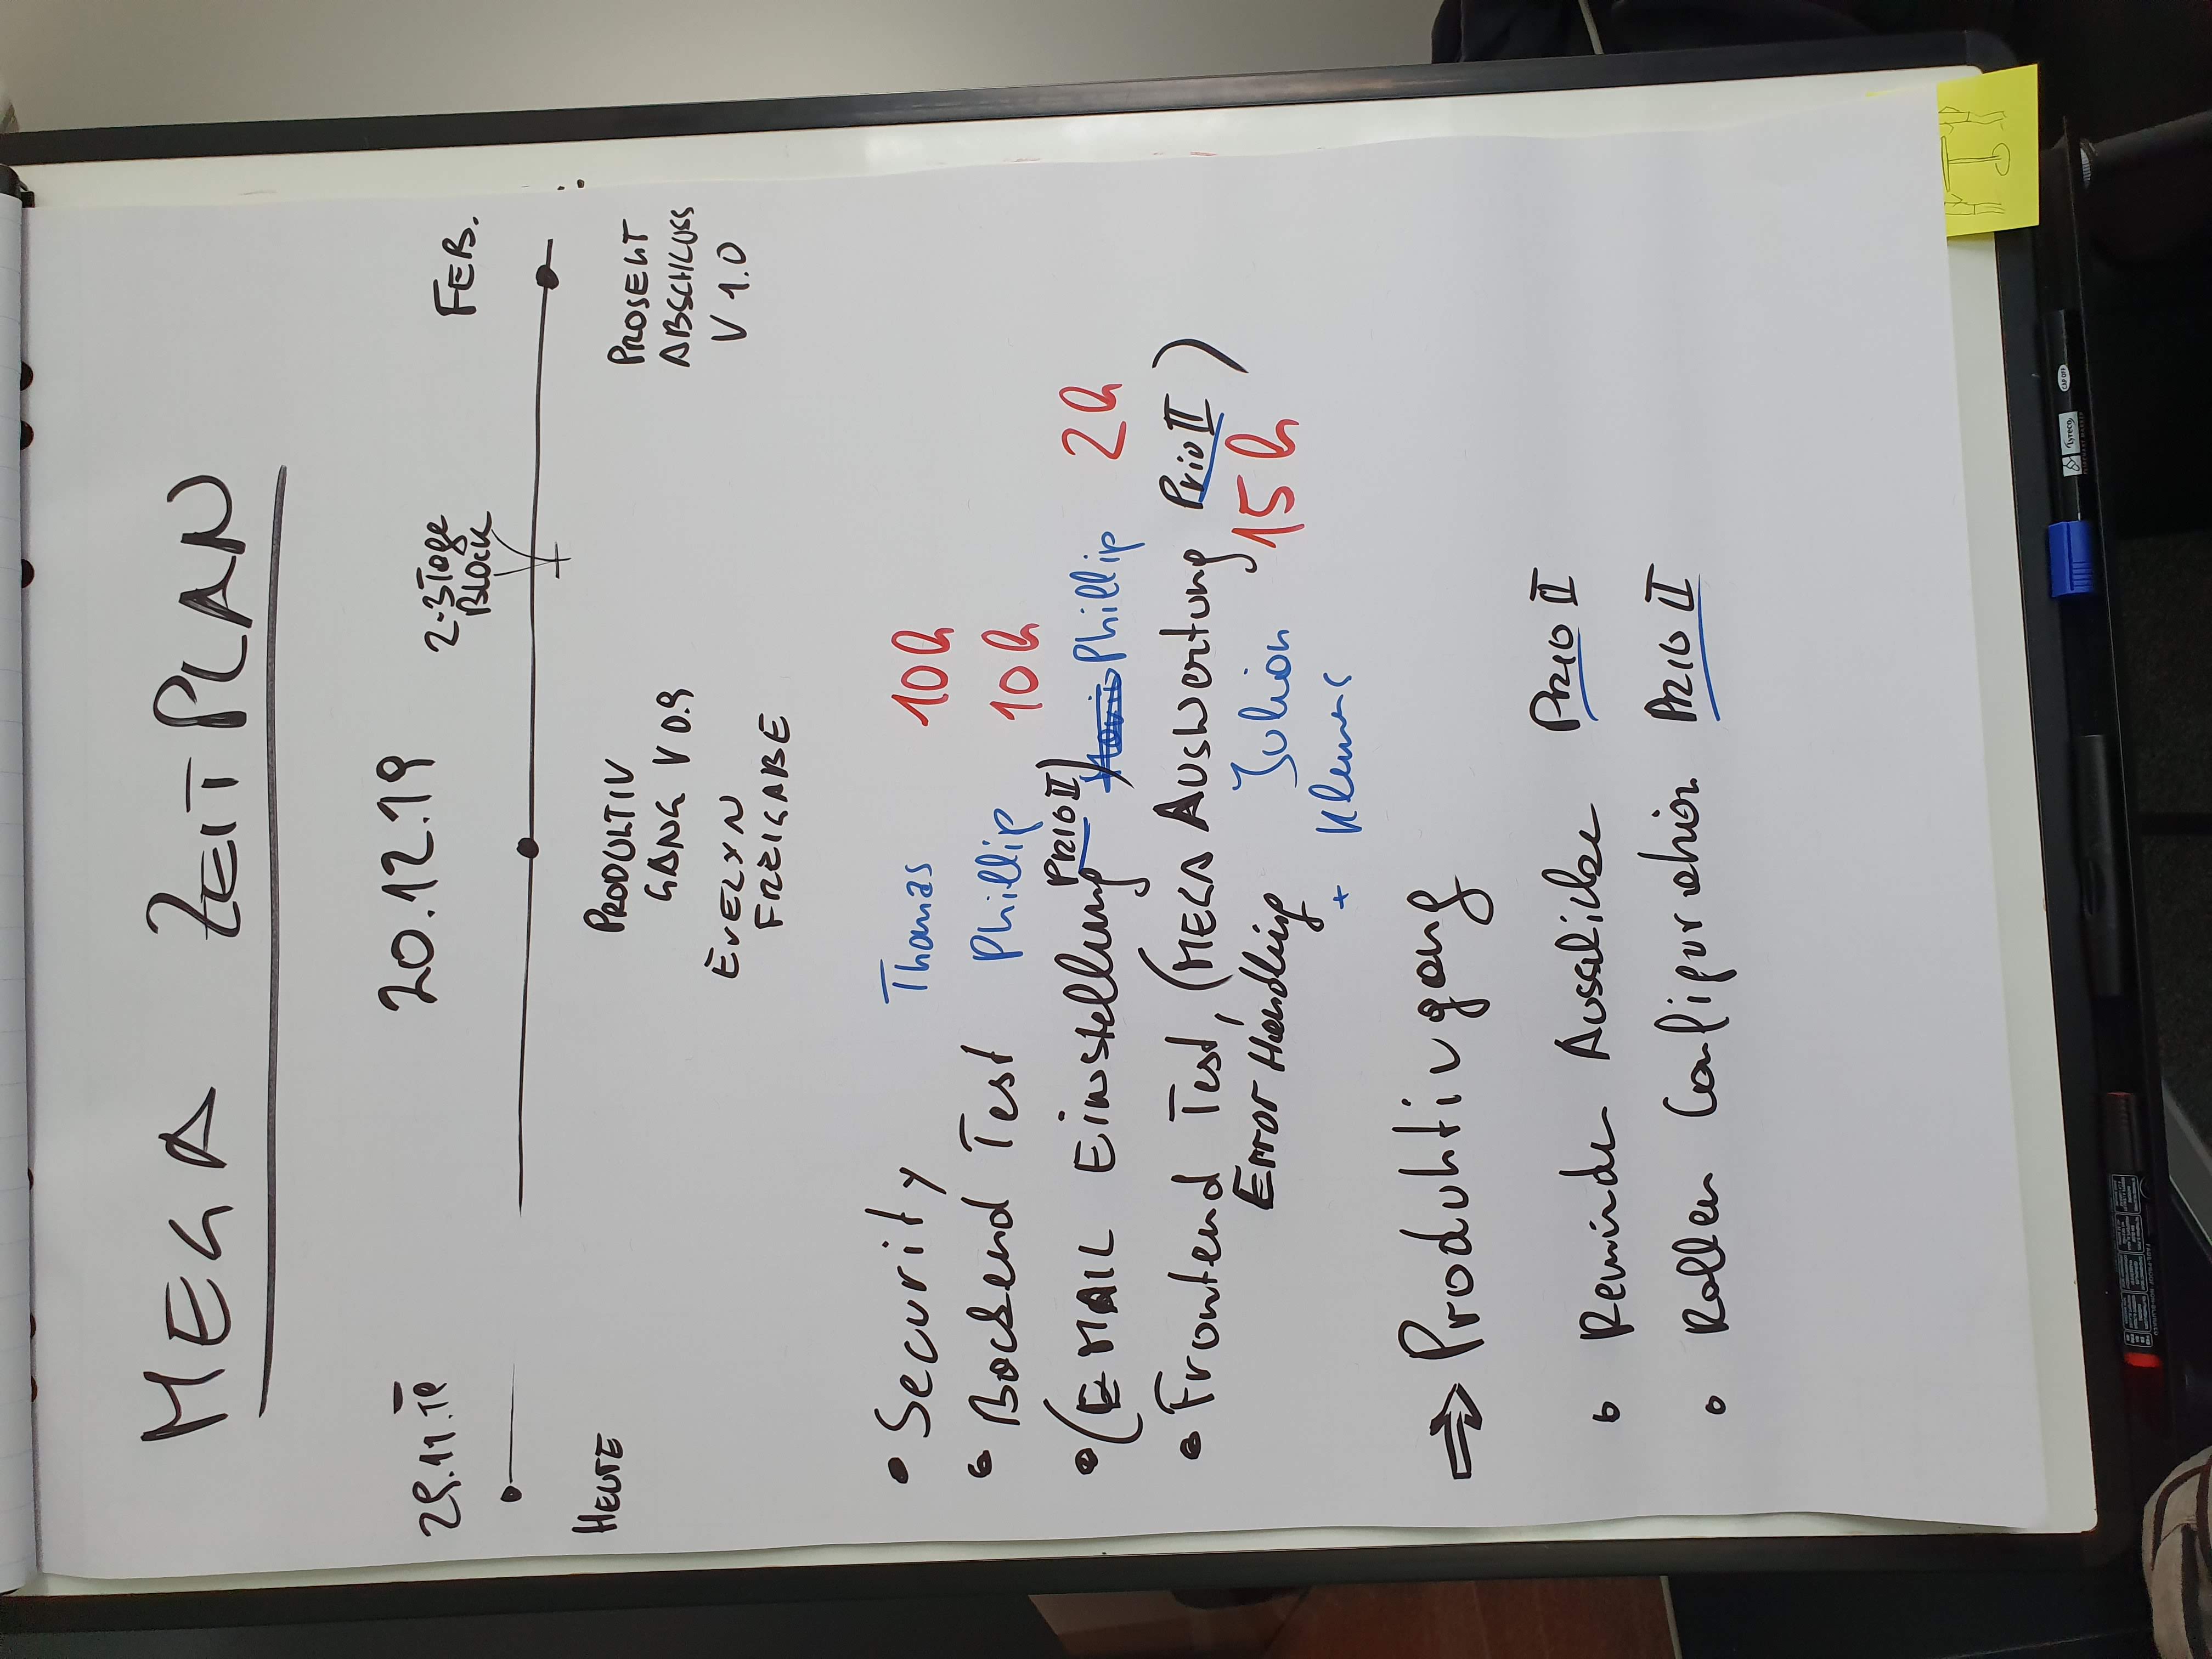 MEGA ZEITPLAN
29.11.19
20.12.19
2-3 Tage
BLOCK
FEB.
HEUTE
PRODUKTIV
GANG V 0.9
EVELYN
FREIGABE
PROJEKT
ABSCHLUSS
V 1.0
• Security Thomas 10h
• Backend Test Phillip 10h
• (EMAIL Einstellung PRIO II) Phillip 2h
• Frontend Test, (MEGA Auswertung Prio II)
Error Handling Julian 15h
+ Klemens
⇒ Produktivgang
• Reminder PRIO II
• Rollen Configuration PRIO II
lyreco
CAP OFF